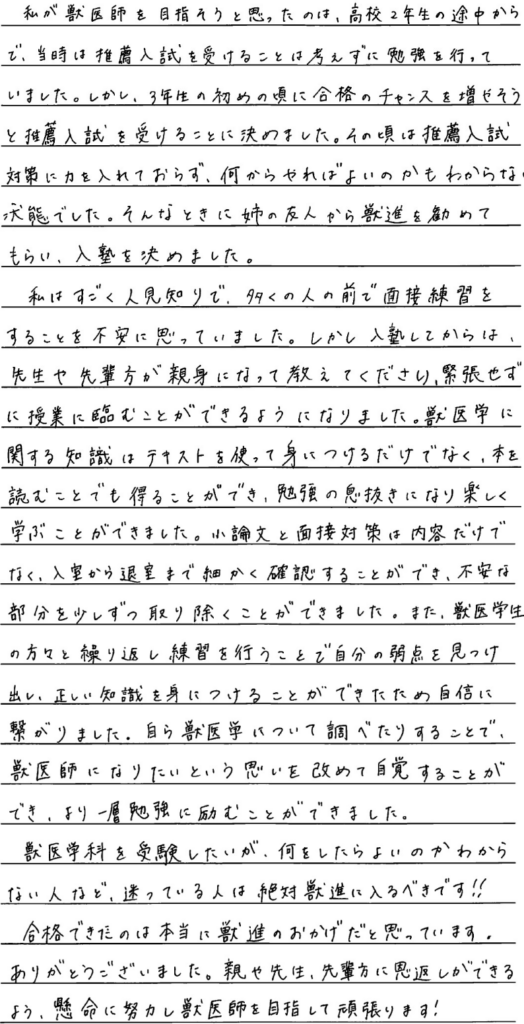 私が獣医師を目指そうと思ったのは、高校2年生の途中から
で、当時は推薦入試を受けることは考えずに勉強を行って
いました。しかし、3年生の初めの頃に合格のチャンスを増やそう
と推薦入試を受けることに決めました。その頃は推薦入試
対策に力を入れておらず、何からやればよいのかもわからない
状態でした。そんなときに姉の友人から獣進を勧めて
もらい、入塾を決めました。
私はすごく人見知りで、多くの人の前で面接練習を
することを不安に思っていました。しかし入塾してからは、
先生や先輩方が親身になって教えてくださり、緊張せず
に授業に臨むことができるようになりました。獣医学に
関する知識はテキストを使って身につけるだけでなく、本を
読むことでも得ることができ、勉強の息抜きになり楽しく
学ぶことができました。小論文と面接対策は内容だけで
なく、入室から退室まで細かく確認することができ、不安な
部分を少しずつ取り除くことができました。また、獣医学生
の方々と繰り返し練習を行うことで自分の弱点を見つけ
出し、正しい知識を身につけることができたため自信に
繋がりました。自ら獣医学について調べたりすることで、
獣医師になりたいという思いを改めて自覚することが
でき、より一層勉強に励むことができました。
獣医学科を受験したいが、何をしたらよいのかわから
ない人など、迷っている人は絶対獣進に入るべきです!!
合格できたのは本当に獣進のおかげだと思っています。
ありがとうございました。親や先生、先輩方に恩返しができる
よう、懸命に努力し獣医師を目指して頑張ります!